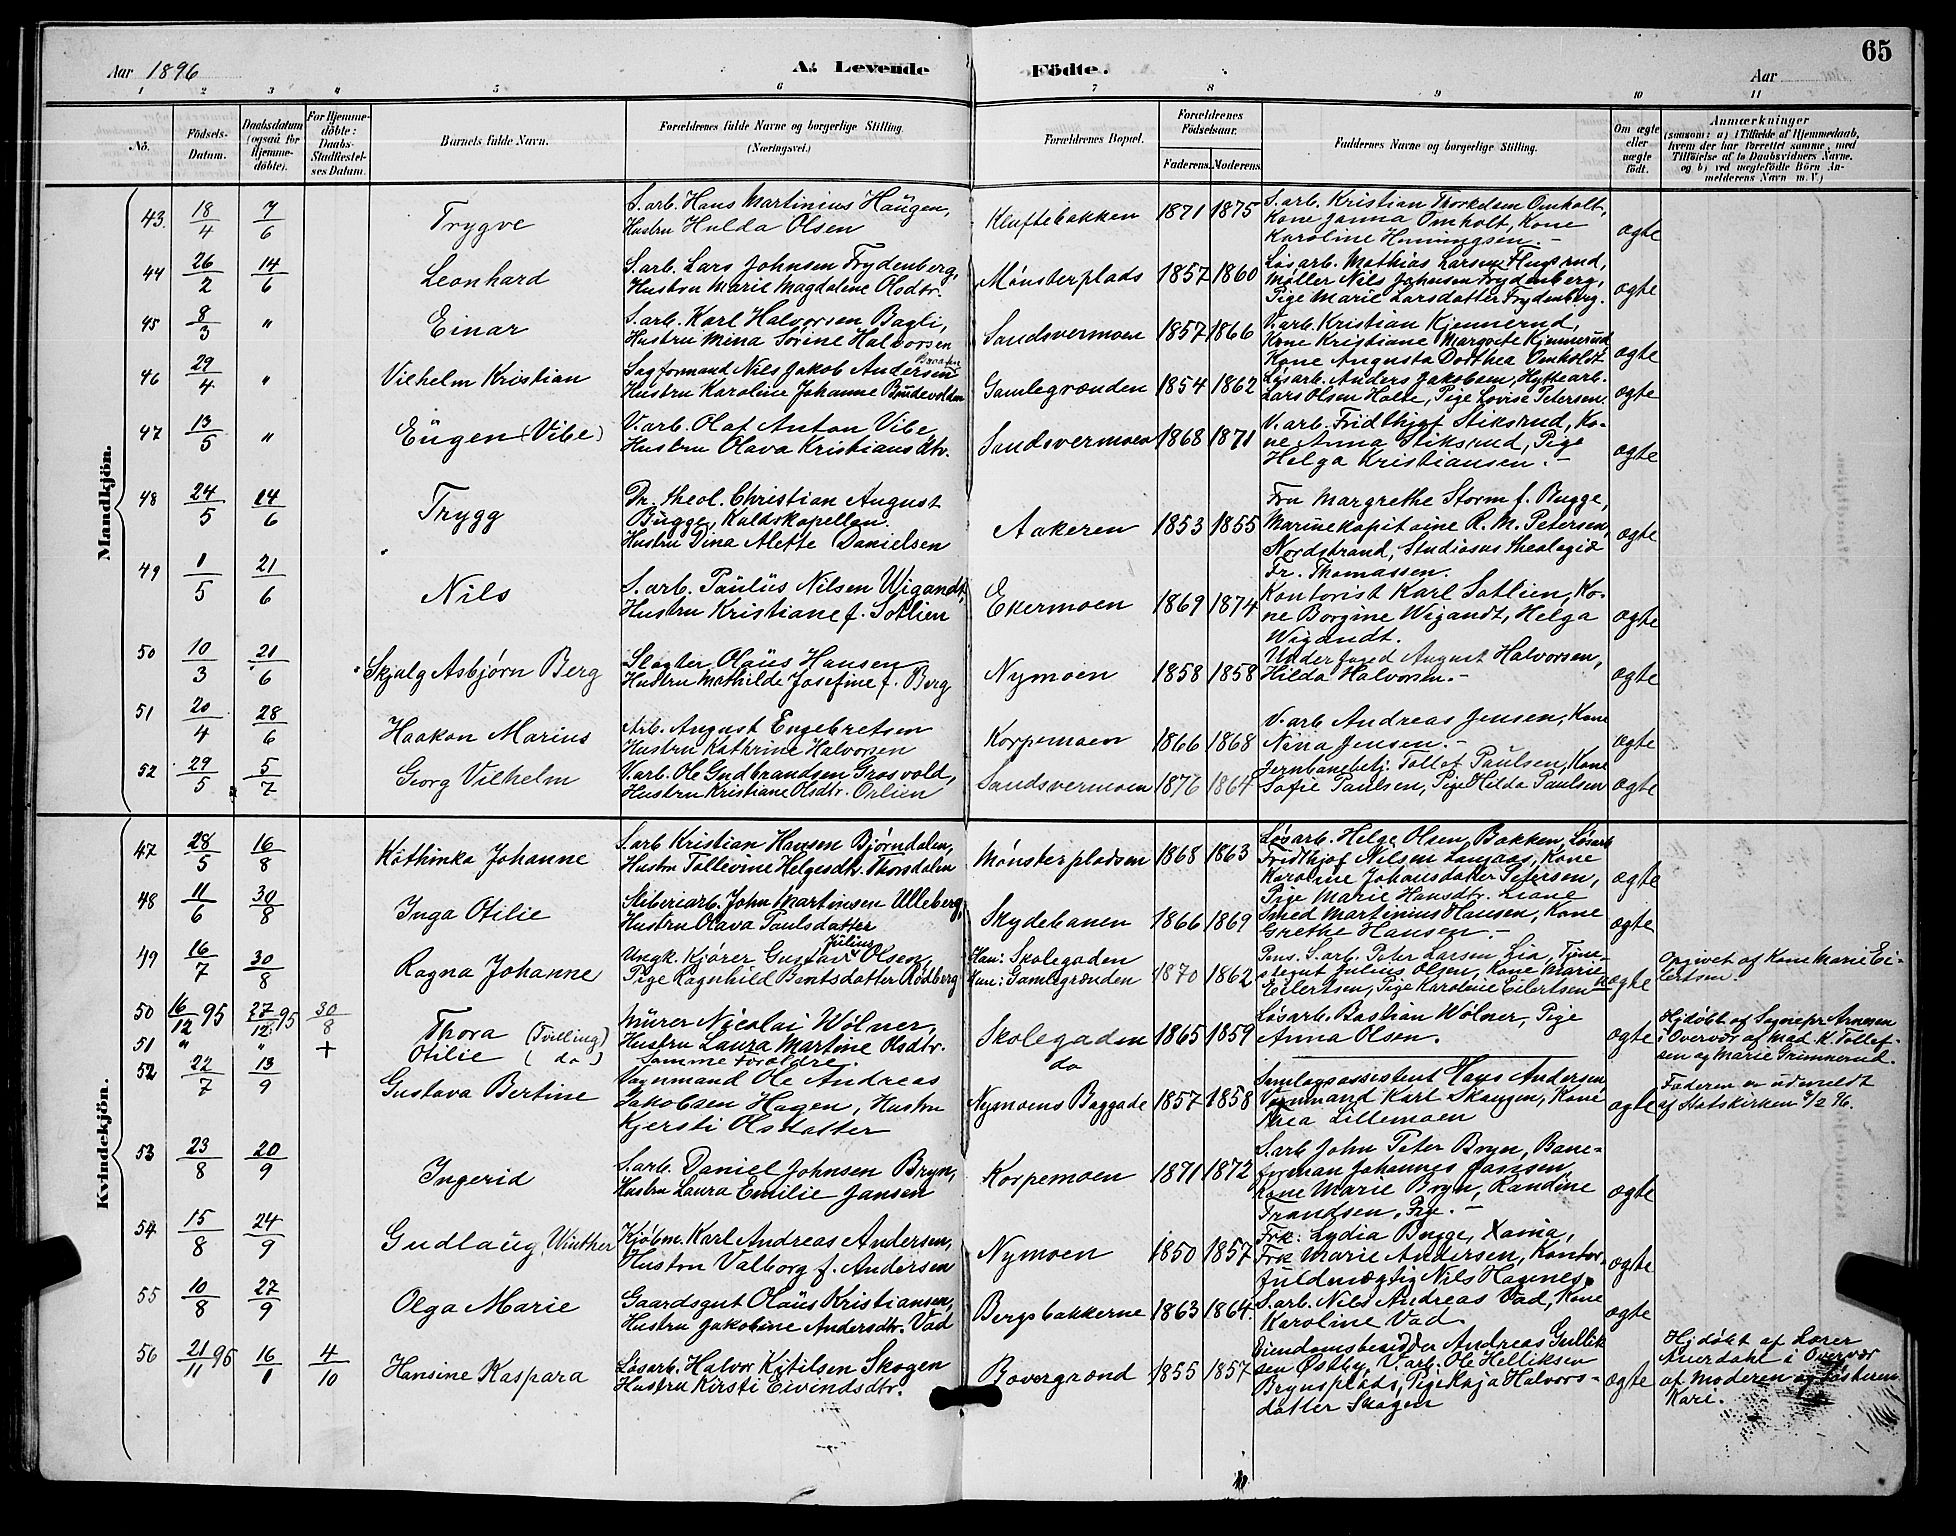 65
Aar 1896
A. Levende
Födte.
Aar
1 2 3 4 5 6 7 8 9 10 11
No.
Födsels-
Datum.
Daabsdatum
(ogsaa for
Hjemme-
döbte).
For Hjemme-
döbte:
Daabs-
Stadfæstel-
ses Datum.
Barnets fulde Navn.
Forældrenes fulde Navne og borgerlige Stilling
(Næringsvei.)
Forældrenes Bopæl.
Forældrenes
Födselsaar.
Faderens.
Moderens.
Faddernes Navne og borgerlige Stilling.
Om ægte
eller
uægte
födt.
Anmærkninger
(saasom: a) i Tilfælde af Hjemmedaab,
hvem der har forrettet samme, med
Tilföielse af to Daabsvidners Navne,
og b) ved uægtefödte Börn An-
melderens Navn m. V.)
Mandkjön.
43. 18/4 7/6 Trygve
S. arb. Hans Martinius Haugen,
Hustru Hulda Olsen
Kluftebakken 1871 1875
S. arb. Kristian Omholt,
Kone Janna Omholt, Kone
Karoline Henningsen.-
ægte
44 26/2 14/6 Leonhard
S. arb. Lars Johnsen Frydenberg,
Hustru Marie Magdaline Olsdtr.
Mønsterplads 1857 1860
Løsarb. Mathias Larsen
Møller Nils Johnsen Frydenberg,
Pige Marie Larsdatter Frydenberg.
ægte
45 8/3 " Einar
S. arb. Karl Halvorsen Bagli,
Hustru Mina Sørine Halvorsen
Sandsvermoen 1857 1866
V. arb. Kristian Kjennerud,
Kone Kristiane Margrete Kjennerud
Kone Augusta Dorthea Omholdt
ægte
46 29/4 " Vilhelm Kristian
Sagformand Nils Jakob Andersen Braaten
Hustru Karoline Johanne
Gamlegrænden 1854 1862
Løsarb. Anders Jakobsen, Hyttearb.
Lars Olsen Holte, Pige Lovise Petersen.
ægte
47 13/5 " Eugen (Vibe)
V. arb. Olaf Anton Vibe,
Hustru Olava Kristiansdtr.
Sandsvermoen 1868 1871
V. arb. Fridthjof Stiksrud, Ko-
ne Anna Stiksrud, Pige
Helga Kristiansen.-
ægte
48 24/5 14/6 Trygg
Dr. theol. Christian August
Bugge, Kaldskapellan.
Hustru Dina Alette Danielsen
Aakeren 1853 1855
Fru Margrethe Storm f. Bugge,
Marinekapitaine R. M. Petersen,
Nordstrand, Studiosus theologiæ
Fr. Thomassen.
ægte
49 1/5 21/6 Nils
S. arb. Paulus Nilsen Wigandt,
Hustru Kristiane f. Sotlien
Ekermoen 1869 1874
Kontorist Karl Sotlien, Ko-
ne Borgine Wigandt, Helga
Wigandt.
ægte
50 10/3 21/6 Skjalg Asbjørn Berg
Slagter Olaus Hansen
Hustru Mathilde Josefine f. Berg
Nymoen 1858 1858
Underfoged August Halvorsen,
Hilda Halvorsen.-
ægte
51 20/4 28/6 Haakon Marius
Arb. August Engebretsen
Hustru Kathrine Halvorsen
Korpemoen 1866 1868
V. arb. Andreas Jensen, Kone
Nina Jensen.-
ægte
52 29/5 5/7 Georg Vilhelm
V. arb. Ole Gudbrandsen Grosvold,
Hustru Kristiane Olsdtr. Orlien
Sandsvermoen 1876 1864
Jernbanebetj. Tollef Paulsen, Kone
Sofie Paulsen, Pige Hilda Paulsen
ægte
Kvindekjön.
47 28/5 16/8 Kathinka Johanne
S. arb Kristian Hansen Bjørndalen,
Hustru Tollevine Helgesdtr. Thorsdalen
Mønsterpladsen 1868 1863
Løsarb. Helge Olsen Bakken, Løsarb
Fridthjof Nilsen Langaas, Kone
Karoline Johansdatter Petersen,
Pige Marie Hansdtr. Liane
ægte
48 11/6 30/8 Inga Otilie
Stiberiarb. John Martinsen Ulleberg,
Hustru Olava Paulsdatter
Skydebanen 1866 1869
Smed Martinius Hansen, Kone
Grethe Hansen.-
ægte
49 16/7 30/8 Ragna Johanne
Ungk. Kjører Gustav Julius Olsen,
Pige Ragnhild Berntsdatter Rødberg
Han: Skolegaden
Hun: Gamlegrænden 1870 1862
Pens. S. arb. Peter Larsen Lia, Tjene-
stegut Julius Olsen, Kone Marie
Eilertsen, Pige Karoline Eilertsen
uægte
Opgivet af Kone Marie Ei-
lertsen.
50 16/12 95 27/12 95 30/8 Thora (Tvilling)
Murer Nicolai Wølner,
Hustru Laura Martine Olsdtr.
Skolegaden 1865 1859
Løsarb. Bastian Wølner, Pige
Anna Olsen.
ægte
Hjdøbt af Sognepr. Arnesen
i Overvær af Mad. K. Tollef-
sen og Marie Grimnerud.
51 " " + Otilie (do)
Samme Forældre.
do
52 22/7 13/9 Gustava Bertine
Vognmand Ole Andreas
Jakobsen Hagen, Hustru
Kjersti Olsdatter
Nymoens Baggade 1857 1858
Samlagsassistent Hans Andersen
Vognmand Karl Skaugen, Kone
Thea Lillemoen
ægte
Faderen er udmeldt
af Statskirken 9/2 96.
53 23/8 20/9 Ingerid
S. arb. Daniel Johnsen Bryn,
Hustru Laura Emilie Jansen
Korpemoen 1871 1872
S. arb John Peter Bryn, Bane-
forman Johannes Jansen,
Kone Marie Bryn, Randine
Frandsen, Pige.-
ægte
54 15/8 24/9 Gudlaug Winther
Kjøbm. Karl Andreas Andersen,
Hustru Valborg f. Andersen
Nymoen 1850 1857
Frk. Lydia Bugge, Xania,
Frk Marie Andersen, Kontor-
fuldmægtig Nils Hagnes.
ægte
55 10/8 27/9 Olga Marie
Gaardsgut Olaus Kristiansen,
Hustru Jakobine Andersdtr. Vad
Bergsbakkerne 1863 1864.
S. arb. Nils Andreas Vad, Kone
Karoline Vad.
ægte
56 21/11 95 16/1 4/10 Hansine Kaspara
Løsarb. Halvor Kjetilsen Skogen
Hustru Kirsti Eivindsdtr.
Bovergrænd 1855 1857
Eiendomsbesidder Andreas Gullik
sen Østby, V. arb. Ole Helliksen
Brynsplads, Pige Kaja Halvors-
datter Skogen
ægte
Hjdøbt af Lærer
Auerdahl i Overvær
af Moderen og Søsteren
Kari.